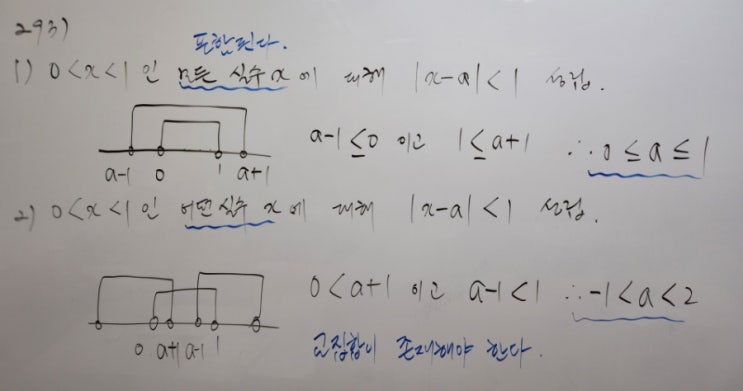 293)
포함된다.
1) 0<x<1 인 모든 실수 x 에 대해 |x-a|<1 성립.
a-1≤0 이고 1≤a+1 ∴ 0≤a≤1
a-1 0 1 a+1
2) 0<x<1 인 어떤 실수 x 에 대해 |x-a|<1 성립.
0<a+1 이고 a-1<1 ∴ -1<a<2
0 a+1 a-1 1
교집합이 존재해야 한다.